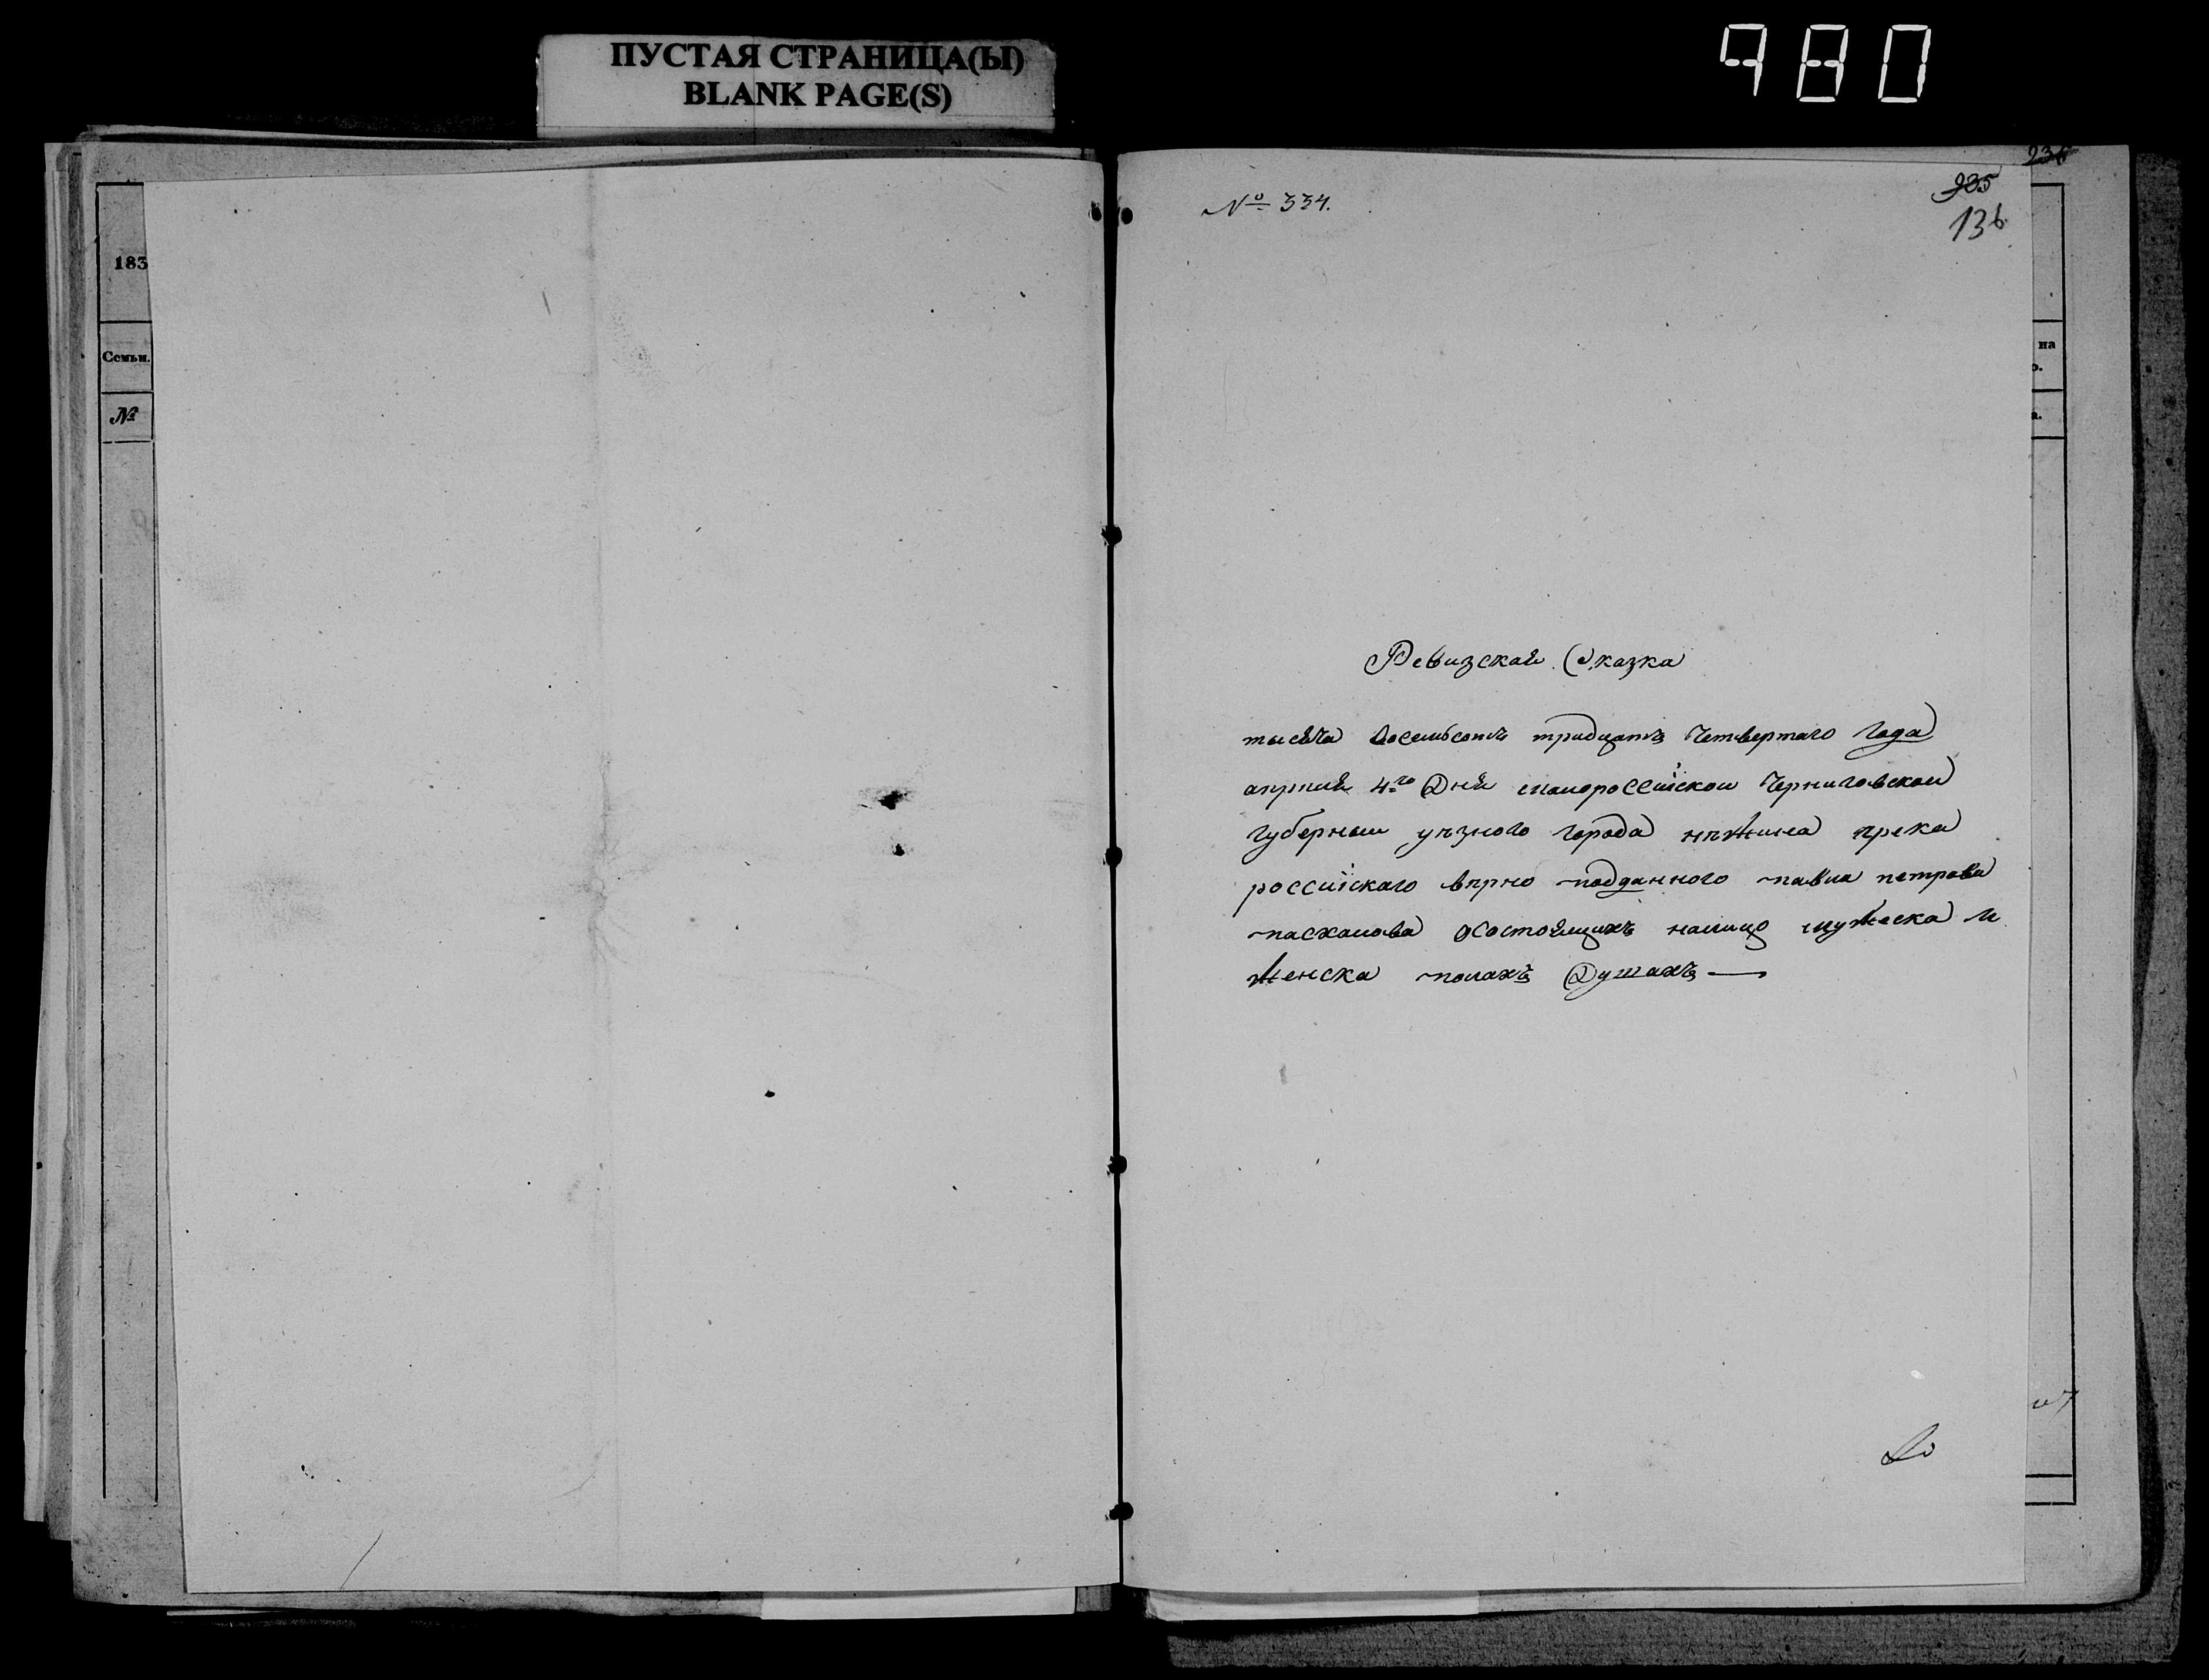 ПУСТАЯ СТРАНИЦА(Ы)
BLANK PAGE(S)
980
183
Семьи.
№
№ 334.
236
235
136
на
о.
а.
Ревизская Сказка
тысяча восемьсотъ тридцать четвертаго года
апреля 4го Дня малороссійской Черниговской
губернии уезного города нѣжина грека
россійскаго вѣрно подданного павла петрова
пасхалова осостоящихъ налицо мужеска и
женска полахъ Душахъ —